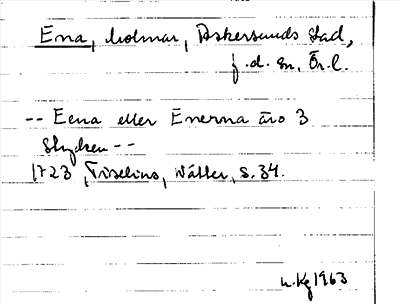 Ena, holmar, Askersunds stad,
f.d. sn, Ör.l.
-- Eena eller Enerna äro 3
stycken --
1723, Tiselius, Wätter, s. 34.
1963